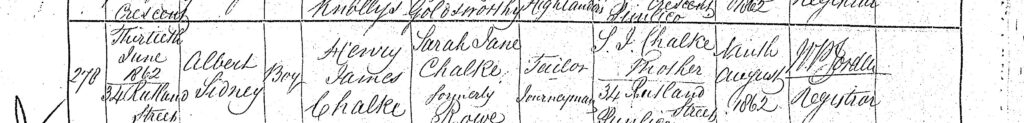 Crescent Knollys Goldsworthy Highlanders Crescent 1862 Registrar
Pimlico
Thirtieth Henry Sarah Jane S. J. Chalke Ninth
June Albert James Chalke Tailor Mother August
278 1862 Sidney Boy Chalke formerly Journeyman 34 Rutland 1862 Registrar
34 Rutland Rowe Street
Street Pimlico